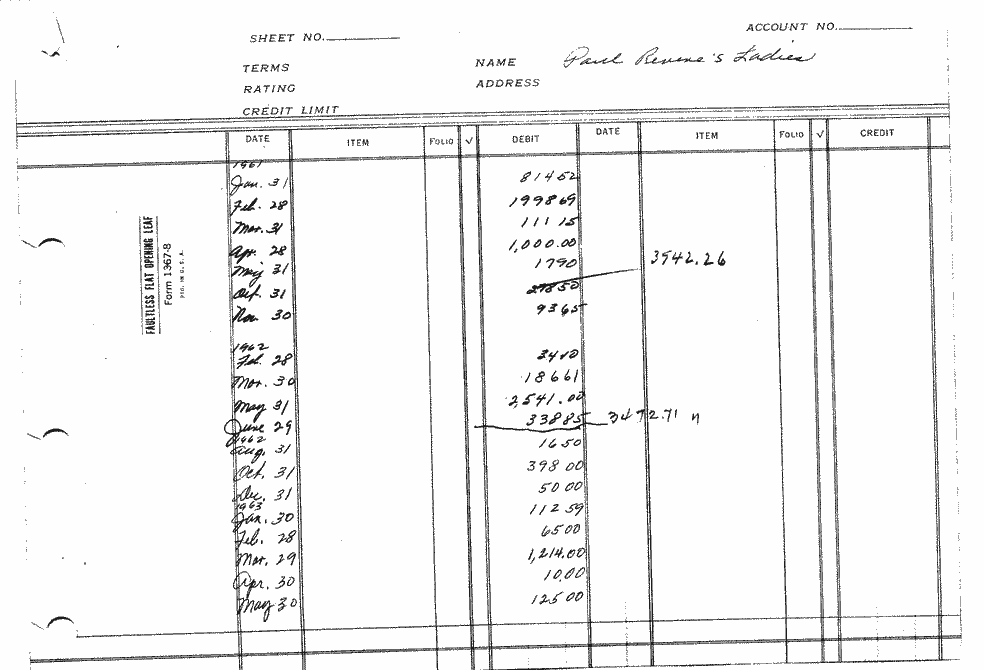 SHEET NO.
ACCOUNT NO.
TERMS
RATING
CREDIT LIMIT
NAME Paul Revere's Ladies
ADDRESS
DATE ITEM FOLIO √ DEBIT DATE ITEM FOLIO √ CREDIT
FAULTLESS FLAT OPENING LEAF
Form 1367-8
1961
Jan. 31 814 52
Feb. 28 1998 69
Mar. 31 111 15
Apr. 28 1,000.00
May 31 17 90 3942.26
Oct. 31 278 50
Nov. 30 93 65
1962
Feb. 28 34 10
Mar. 30 186 61
May 31 2,541.00
June 29 338 85 3472.71
1962
Aug. 31 16 50
Oct. 31 398 00
Dec. 31 50 00
1963
Jan. 30 112 59
Feb. 28 65 00
Mar. 29 1,214.00
Apr. 30 10.00
May 30 125 00